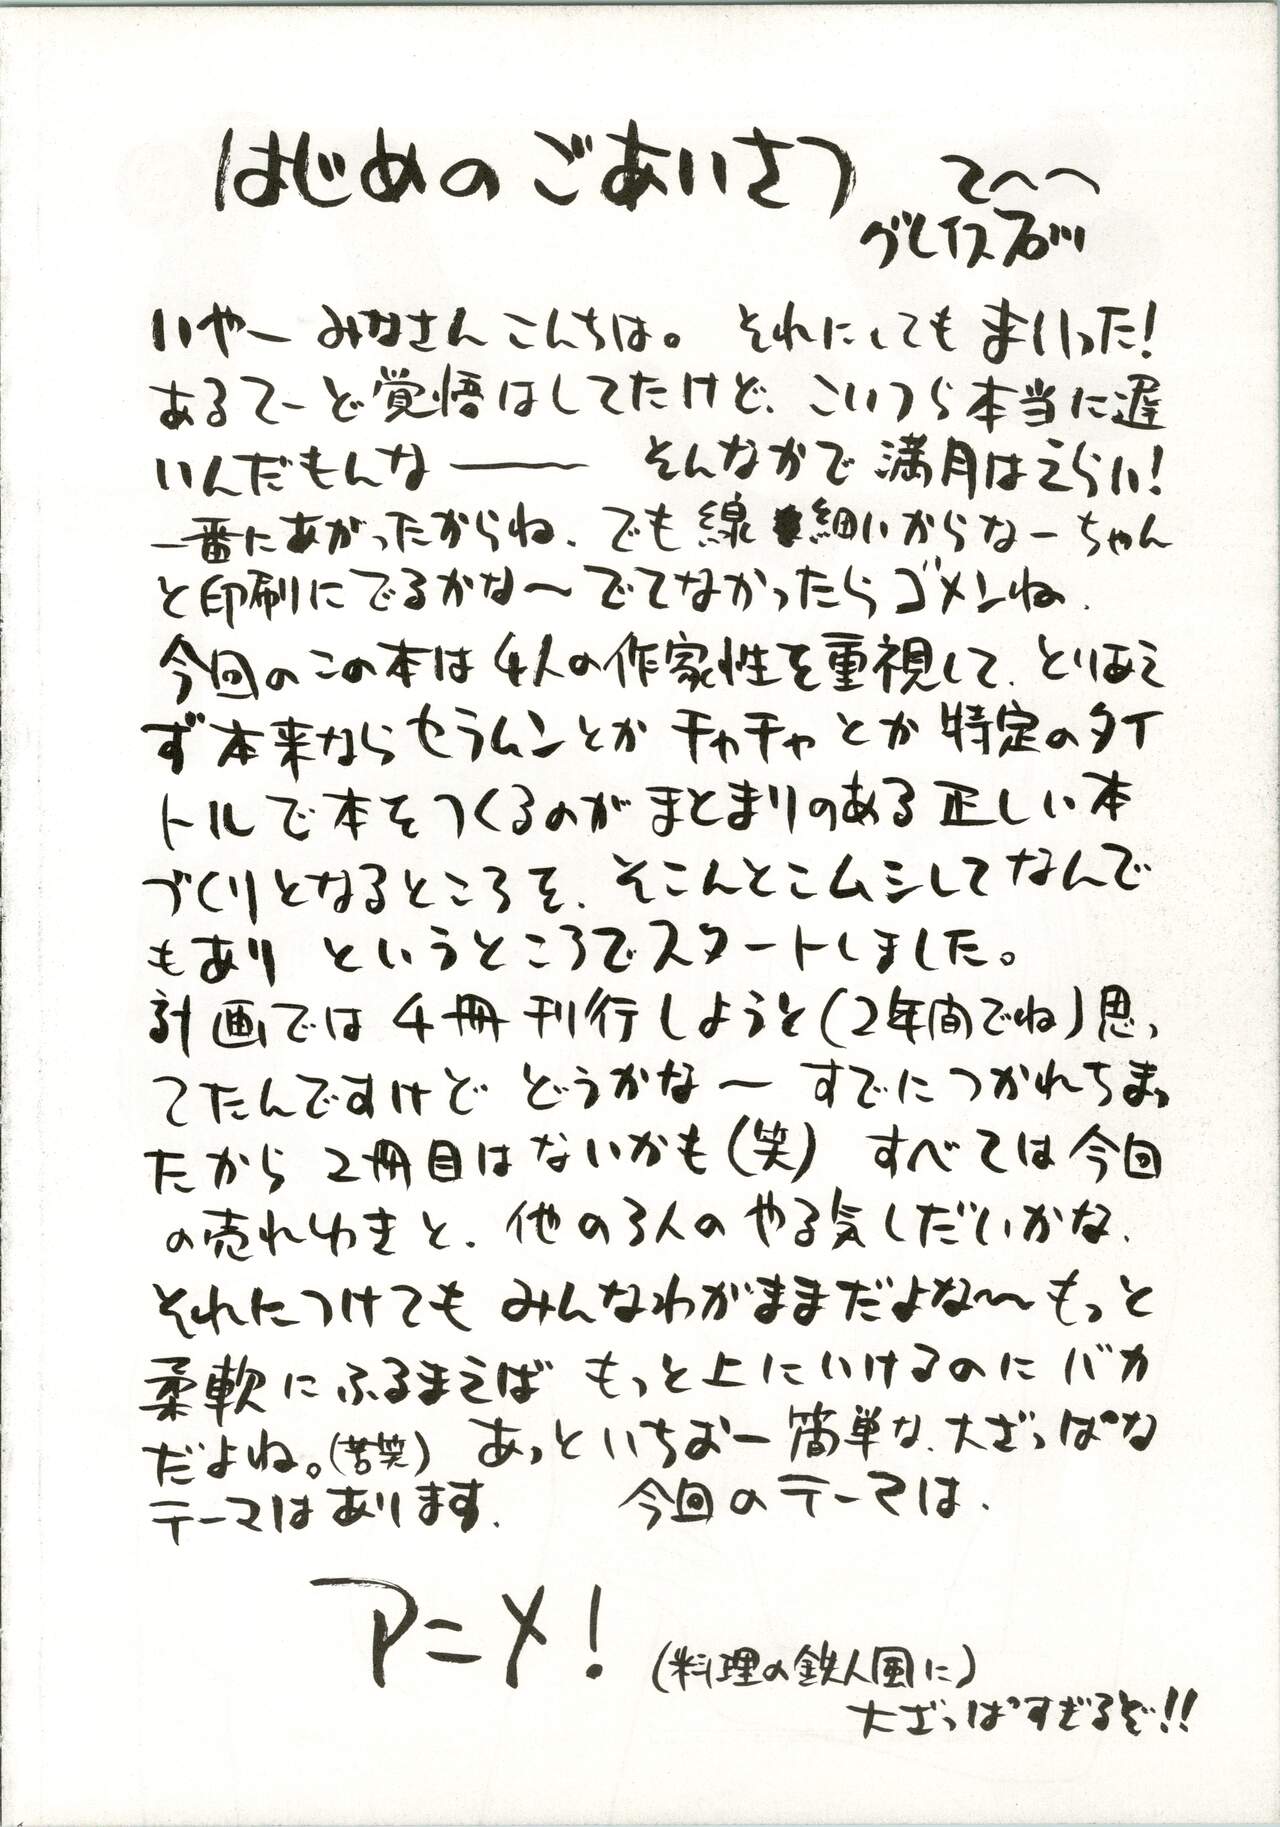 はじめのごあいさつ てへへ
グレイスズ
いやー みなさんこんちは。 それにしてもまいった!
あるてーど覚悟はしてたけど、こいつら本当に遅
いんだもんなー そんなかで満月はえらい!
一番にあがったからね、でも線細いからなーちゃん
と印刷にでるかな〜でてなかったらゴメンね、
今回のこの本は4人の作家性を重視して、とりあえ
ず本来ならセラムンとかチャチャとか特定のタイ
トルで本をつくるのがまとまりのある正しい本
づくりとなるところを、そこんとこムシしてなんで
もあり というところでスタートしました。
計画では4冊刊行しようと(2年間でね)思っ
てたんですけど どうかな〜 すでにつかれちまっ
たから2冊目はないかも(笑) すべては今回
の売れゆきと、他の3人のやる気しだいかな、
それにつけても みんなわがままだよな〜もっと
柔軟にふるまえば もっと上にいけるのにバカ
だよね。(苦笑) あっといちおー簡単な、大ざっぱな
テーマはあります、 今回のテーマは、
アニメ!
(料理の鉄人風に)
大ざっぱすぎるぞ!!